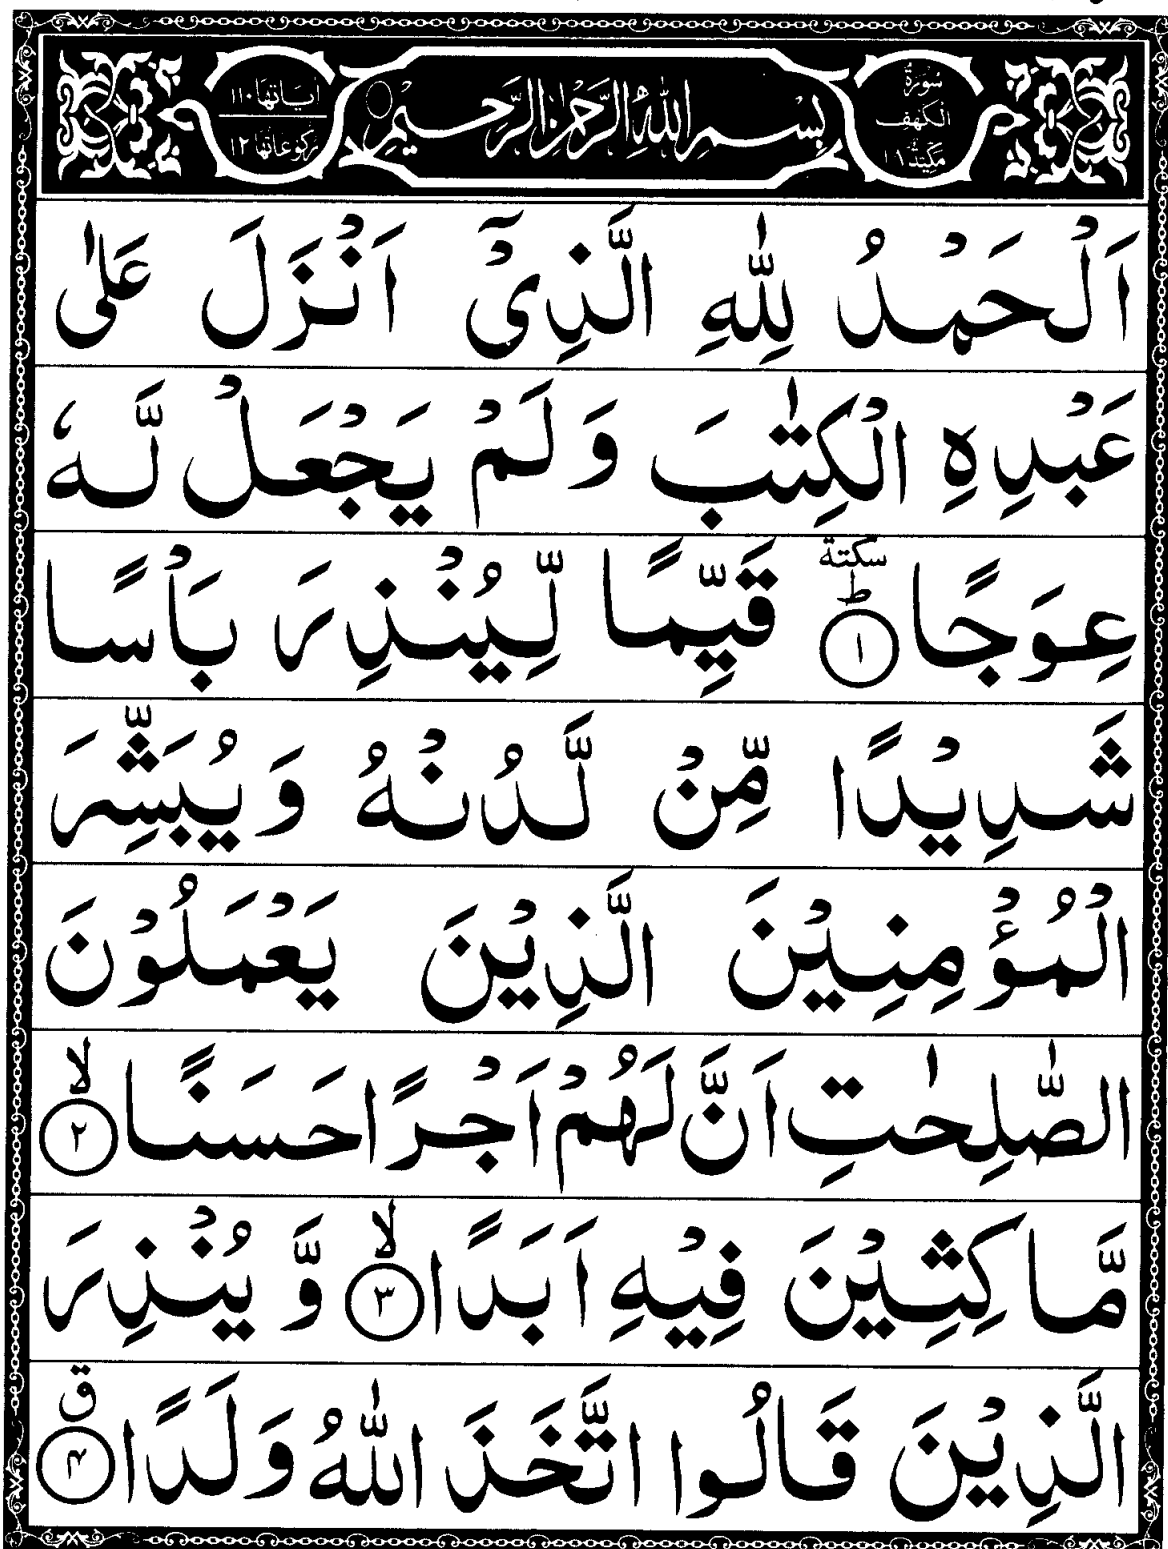 سُوْرَةُ
الْكَهْفِ
مَكِّيَّةٌ ١٨
بِسْمِ اللّٰهِ الرَّحْمٰنِ الرَّحِيْمِ
اٰيَاتُهَا ١١٠
رُكُوْعَاتُهَا ١٢
اَلْحَمْدُ لِلّٰهِ الَّذِیْۤ اَنْزَلَ عَلٰی
عَبْدِهِ الْكِتٰبَ وَ لَمْ یَجْعَلْ لَّهٗ
عِوَجًا ؕسكتة ١ قَیِّمًا لِّیُنْذِرَ بَاْسًا
شَدِیْدًا مِّنْ لَّدُنْهُ وَ یُبَشِّرَ
الْمُؤْمِنِیْنَ الَّذِیْنَ یَعْمَلُوْنَ
الصّٰلِحٰتِ اَنَّ لَهُمْ اَجْرًا حَسَنًا ۙ ٢
مَّاكِثِیْنَ فِیْهِ اَبَدًا ۙ ٣ وَّ یُنْذِرَ
الَّذِیْنَ قَالُوا اتَّخَذَ اللّٰهُ وَلَدًا ق ۴